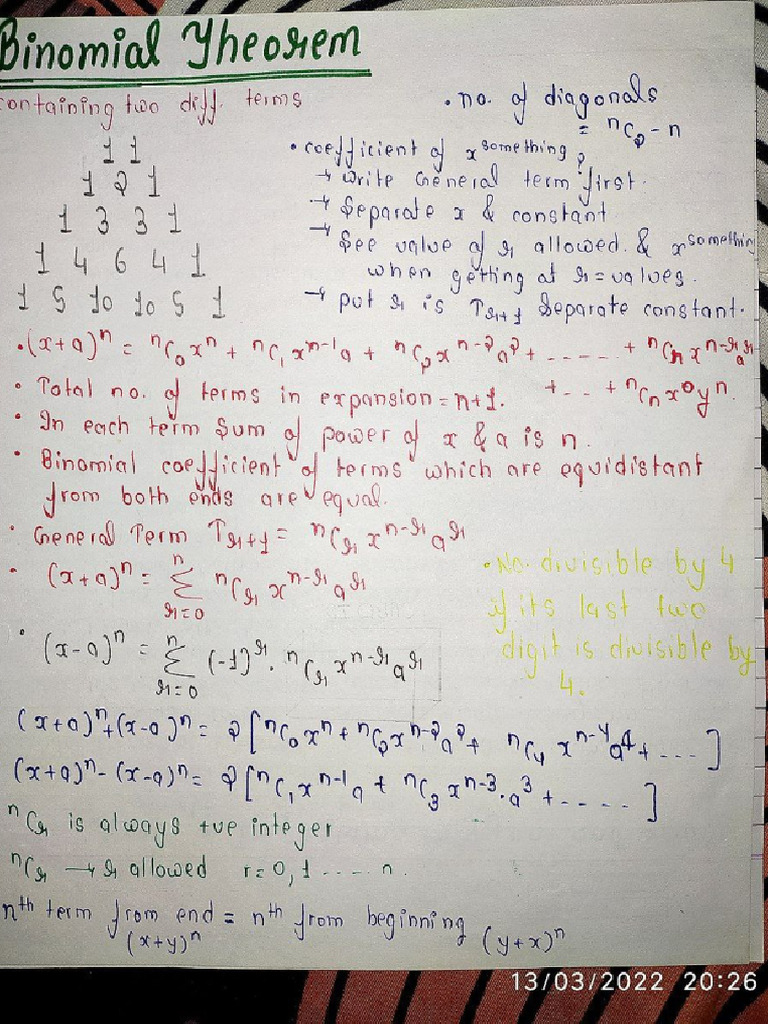 Binomial Theorem
containing two diff. terms
1 1
1 2 1
1 3 3 1
1 4 6 4 1
1 5 10 10 5 1
• no. of diagonals
= ⁿC₂ - n
• coefficient of x^something ?
→ write General term first.
→ Separate x & constant
→ See value of r allowed. & x^something
when getting at r = values.
→ put r is T_{r+1} Separate constant.
• (x+a)ⁿ = ⁿC₀xⁿ + ⁿC₁xⁿ⁻¹a + ⁿC₂xⁿ⁻²a² + ------ + ⁿC_r x^{n-r}a^r
+ -- + ⁿCₙx⁰yⁿ.
• Total no. of terms in expansion = n+1.
• In each term Sum of power of x & a is n.
• Binomial coefficient of terms which are equidistant
from both ends are equal.
• General Term T_{r+1} = ⁿC_r x^{n-r} a^r
• (x+a)ⁿ = Σ_{r=0}^{n} ⁿC_r x^{n-r} a^r
• No. divisible by 4
if its last two
digit is divisible by
4.
• (x-a)ⁿ = Σ_{r=0}^{n} (-1)^r. ⁿC_r x^{n-r} a^r
(x+a)ⁿ+(x-a)ⁿ = 2[ⁿC₀xⁿ + ⁿC₂xⁿ⁻²a² + ⁿC₄ xⁿ⁻⁴a⁴ + ----]
(x+a)ⁿ-(x-a)ⁿ = 2[ⁿC₁xⁿ⁻¹a + ⁿC₃xⁿ⁻³.a³ + -----]
ⁿC_r is always +ve integer
ⁿC_r → r allowed r = 0, 1 ---- n.
nth term from end = nth from beginning
(x+y)ⁿ (y+x)ⁿ
13/03/2022 20:26